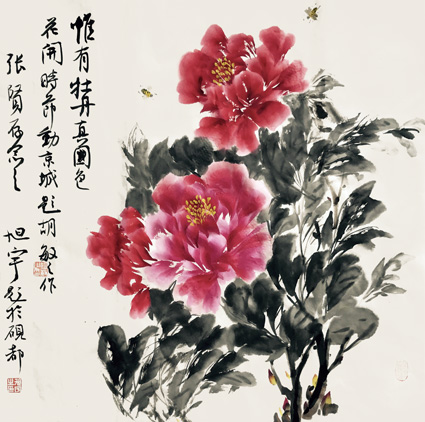 惟有牡丹真國色
花開時節動京城 題胡敏之作
張賢存念之
旭宇題於硯都